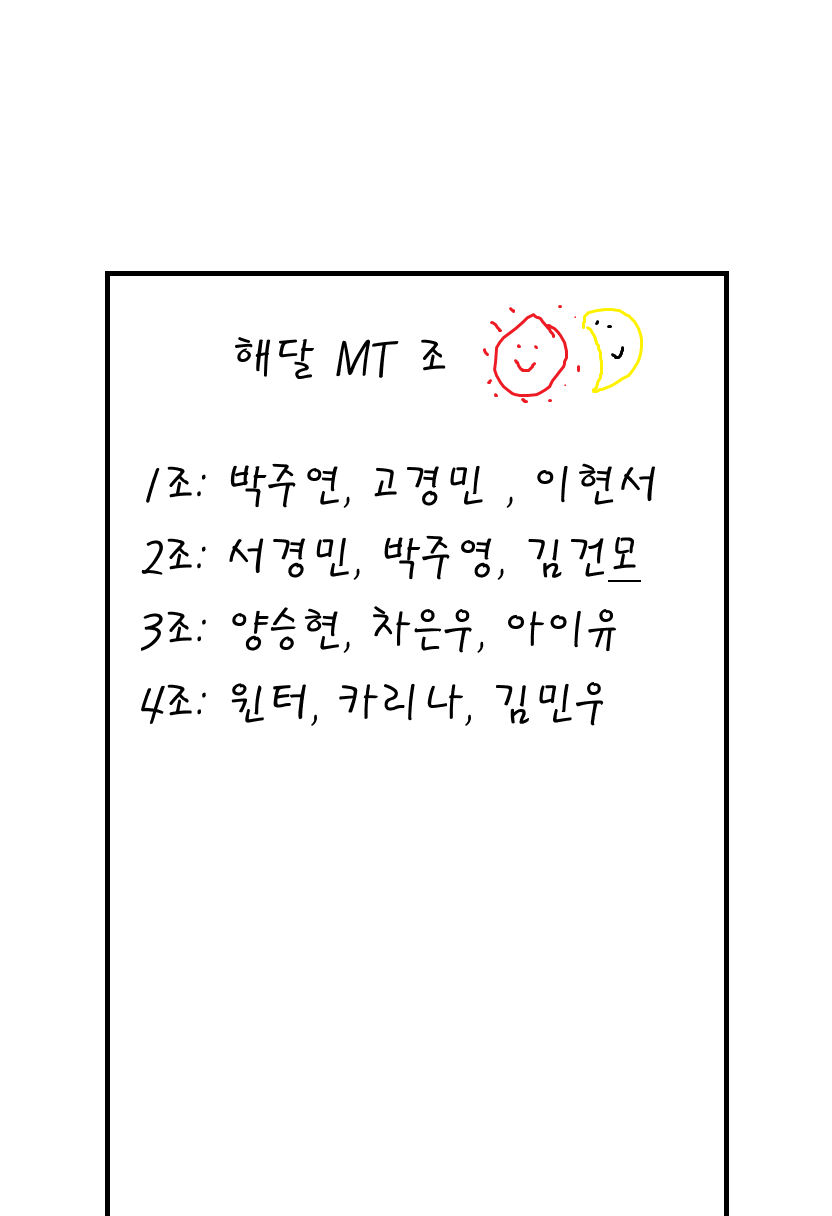 해달 MT 조
1조: 박주연, 고경민 , 이현서
2조: 서경민, 박주영, 김건모
3조: 양승현, 차은우, 아이유
4조: 윈터, 카리나, 김민우